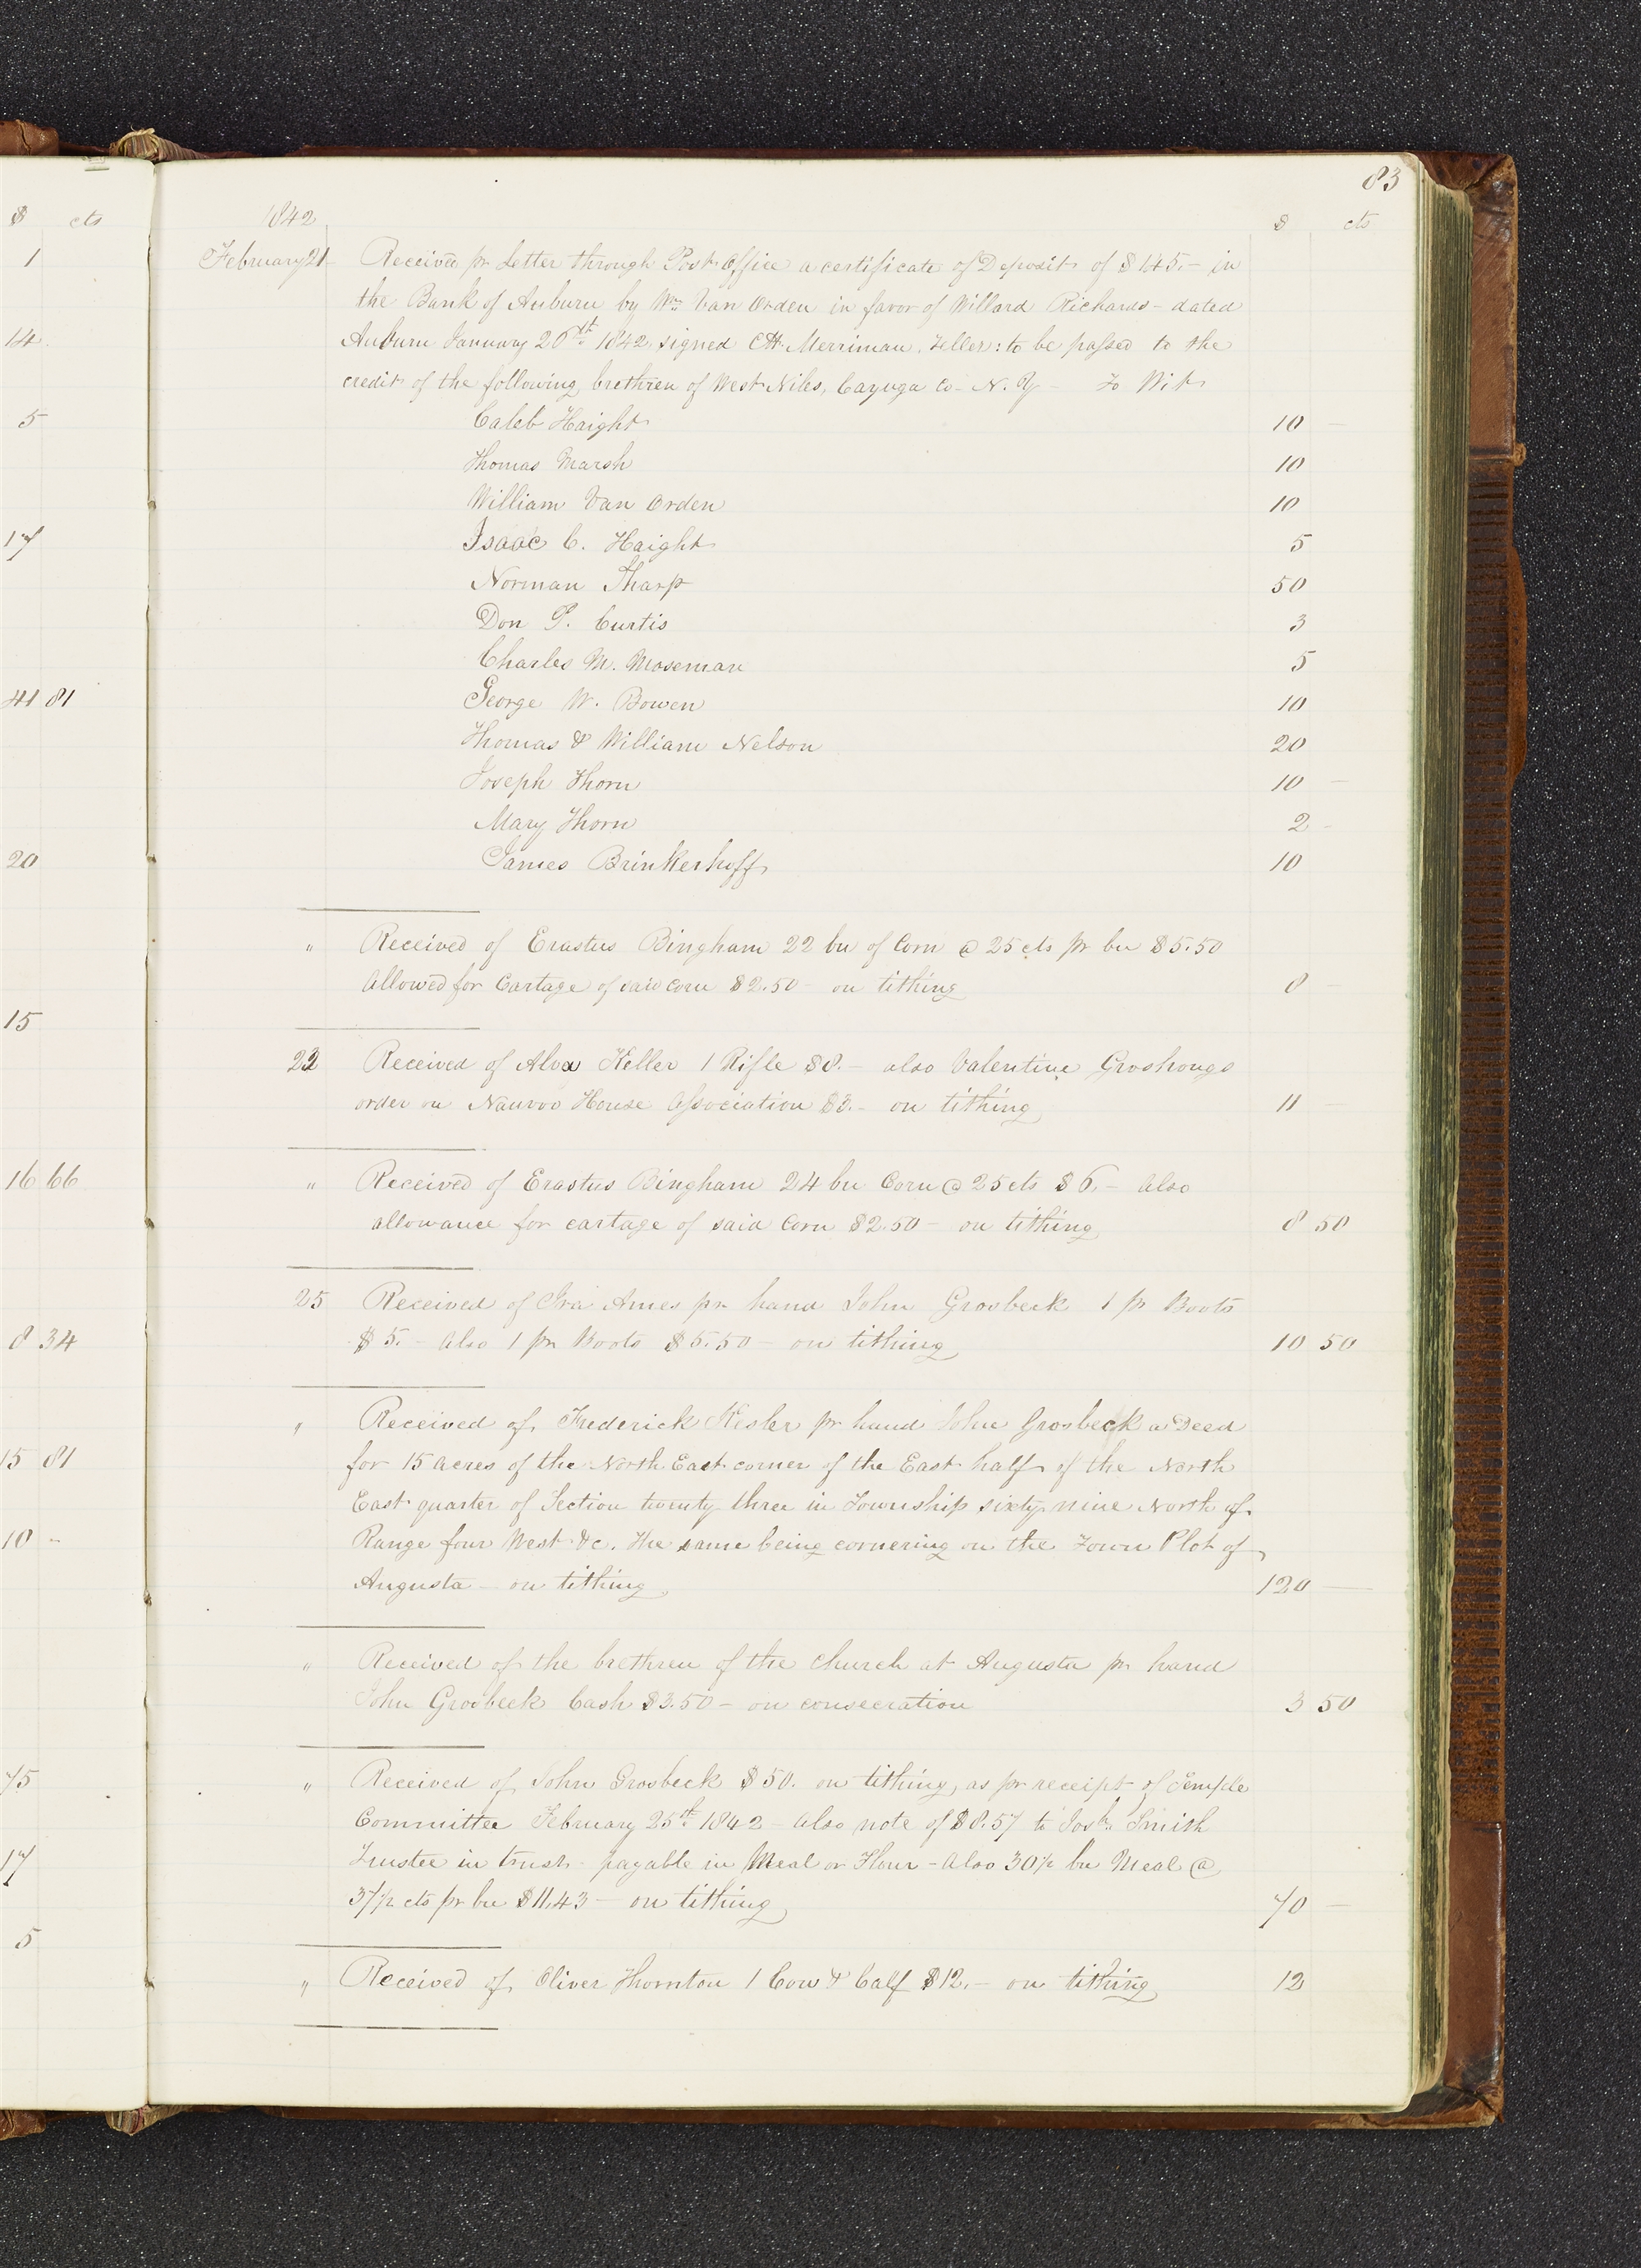 83
$ cts
1842 $ cts
1
14
5
17
41 81
20
15
16 66
8 34
15 81
10 -
75
17
5
February 21 Received pr Letter through Post Office a certificate of Deposit of $145.- in
the Bank of Auburn by Wm Van Orden in favor of Willard Richards - dated
Auburn January 26th 1842 signed C.H. Merriman. Teller: to be passed to the
credit of the following brethren of West Niles, Cayuga Co- N.Y - To Wit
Caleb Haight 10 -
Thomas Marsh 10
William Van Orden 10
Isaac C. Haight 5
Norman Sharp 50
Don S. Curtis 3
Charles M. Moseman 5
George W. Bowen 10
Thomas & William Nelson 20
Joseph Thorn 10 -
Mary Thorn 2 -
James Brinkerhoff 10
" Received of Erastus Bingham 22 bu of Corn @ 25 cts pr bu $5.50
Allowed for Cartage of said corn $2.50 - on tithing 8 -
22 Received of Alva Keller 1 Rifle $8.- also Valentine Groshongs
order on Nauvoo House Association $3.- on tithing 11 -
" Received of Erastus Bingham 24 bu Corn @ 25 cts $6.- Also
allowance for cartage of said Corn $2.50 - on tithing 8 50
25 Received of Ira Ames pr hand John Grosbeck 1 pr Boots
$5.- Also 1 pr Boots $5.50 - on tithing 10 50
" Received of Frederick Kesler pr hand John Grosbeck a Deed
for 15 acres of the North East corner of the East half of the North
East quarter of Section twenty three in Township sixty nine North of
Range four West &c. the same being cornering on the Town Plot of
Augusta - on tithing 120 -
" Received of the brethren of the church at Augusta pr hand
John Grosbeck Cash $3.50 - on consecration 3 50
" Received of John Grosbeck $50. on tithing, as pr receipt of Temple
Committee February 25th 1842 - Also note of $8.57 to Josh Smith
Trustee in trust payable in Meal or Flour - Also 30½ bu Meal @
37½ cts pr bu $11.43 - on tithing 70 -
" Received of Oliver Thornton 1 Cow & Calf $12.- on tithing 12